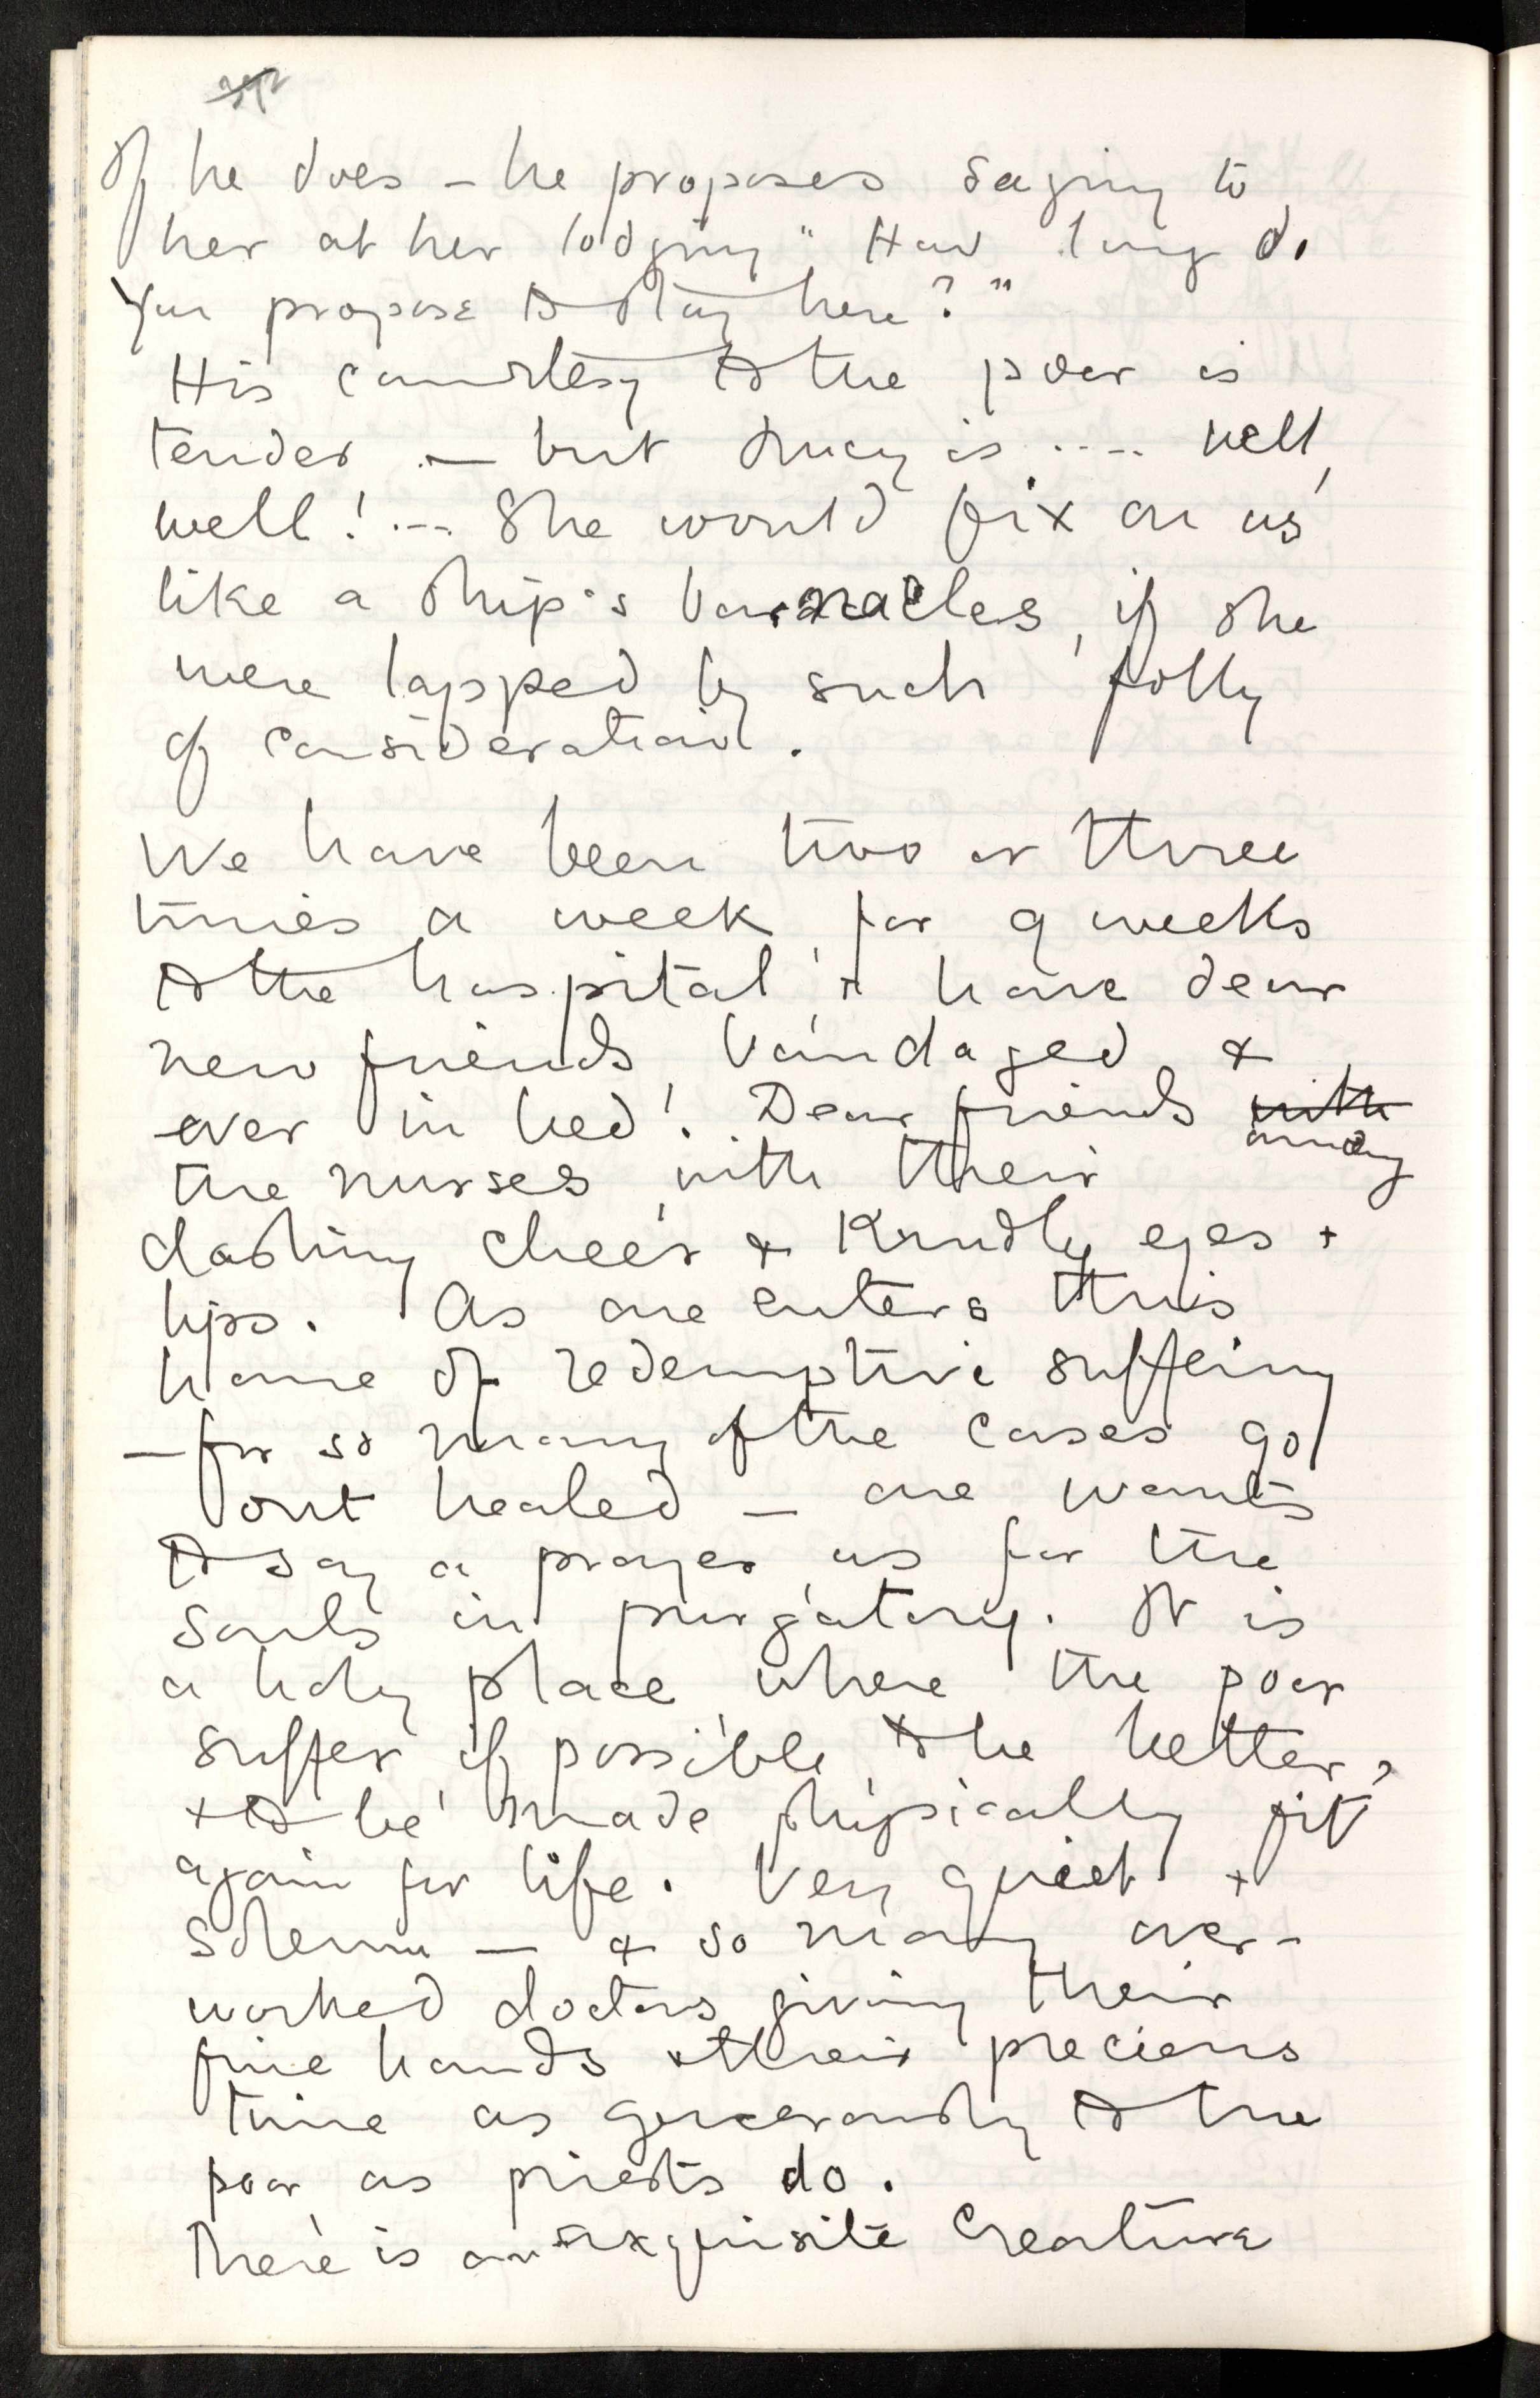 If he does – he proposes saying to
her at her lodging "How long do
you propose to stay here?"
His courtesy to the poor is
tender – but Lucy is .... well,
well! ... She would fix on us
like a ship's barnacles, if she
were lapped by such folly
of consideration.
We have been two or three
times a week, for 9 weeks
to the hospital, & have dear
new friends, bandaged &
ever in bed! Dear friends with
among
the nurses, with their
dashing cheer & kindly eyes +
lips. As one enters this
home of redemptive suffeing
– for so many of the cases go
out healed – one wants
to say a prayer as for the
souls in purgatory. It is
a holy place, where the poor
suffer if possible to be better,
+ to be made phipsically fit
again for life. Very quiet +
solemn – & so many over-
worked doctors giving their
fine hands & their precious
time as generously to the
poor as priests do.
There is an exquisite creature